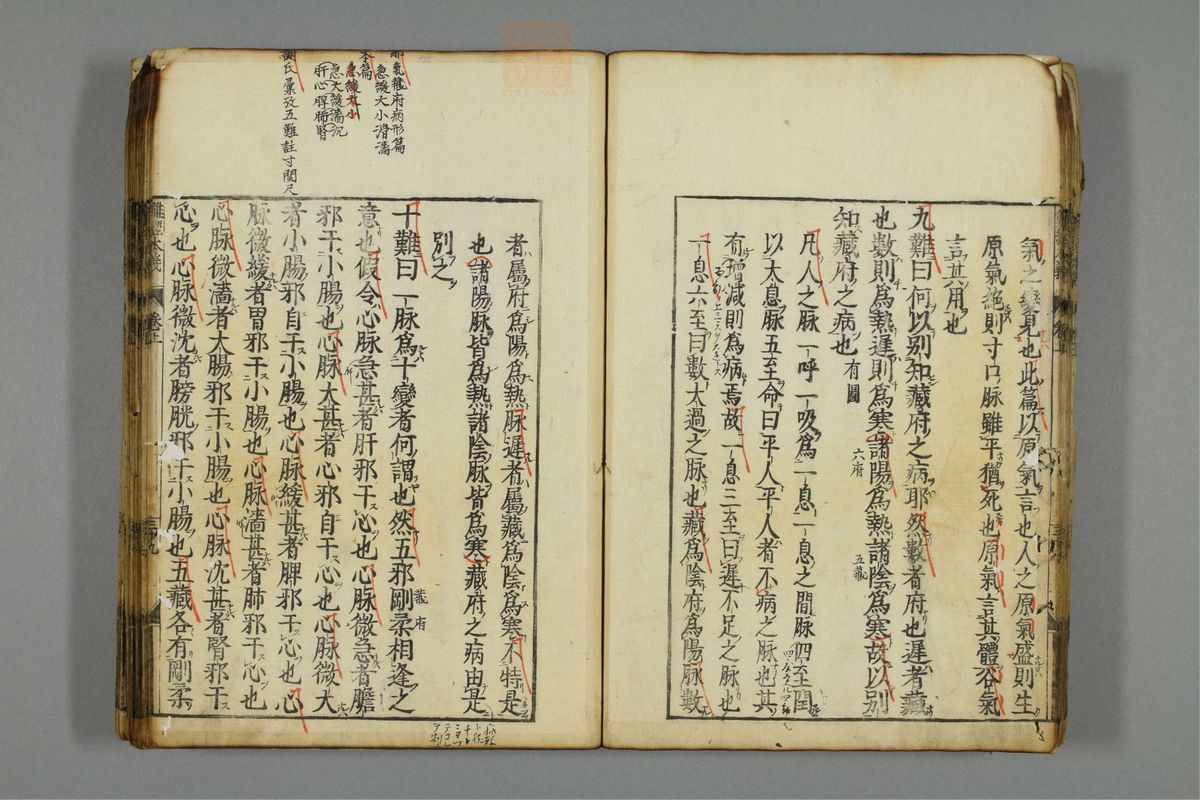 氣之變見也此篇以原氣言也人之原氣盛則生
原氣絶則寸口脉雖平猶死也原氣言其體谷氣
言其用也
九難曰何以别知藏府之病耶然數者府也遲者藏
也數則爲熱遲則爲寒諸陽爲熱諸陰爲寒故以别
知藏府之病也 有圖
六府
五藏
凡人之脉一呼一吸爲一息一息之間脉四至閏
以太息脉五至命曰平人平人者不病之脉也其
有增減則爲病焉故一息三至曰遲不足之脉也
一息六至曰數太過之脉也藏爲陰府爲陽脉數
者屬府爲陽爲熱脉遲者屬藏爲陰爲寒不特是
也諸陽脉皆爲熱諸陰脉皆爲寒藏府之病由是
别之
十難曰一脉爲十變者何謂也然五邪剛柔相逢之
藏府
意也假令心脉急甚者肝邪干心也心脉微急者膽
邪干小腸也心脉大甚者心邪自干心也心脉微大
者小腸邪自干小腸也心脉緩甚者脾邪干心也心
脉微緩者胃邪干小腸也心脉濇甚者肺邪干心也
心脉微濇者大腸邪干小腸也心脉沈甚者腎邪干
心也心脉微沈者膀胱邪干小腸也五藏各有剛柔
氣藏府病形篇
急緩大小滑濇
本篇
急緩大小
急大緩濇沉
肝心脾肺腎
氏彙攷五難註寸関尺
難經本義 卷上